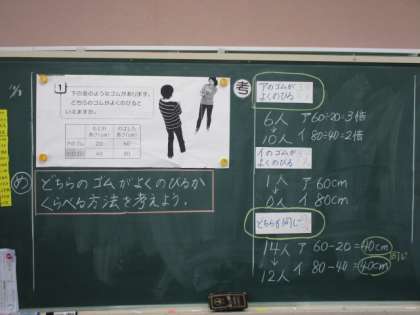 1
下の図のようなゴムがあります。
どちらのゴムがよくのびると
いえますか。
20 60
40 80
め
どちらのゴムがよくのびるか
くらべる方法を考えよう。
考
アのゴムが
よくのびる
6人 ア 60÷20=3倍
↓
10人 イ 80÷40=2倍
イのゴムが
よくのびる
1人 ア 60cm
↓
0人 イ 80cm
どちらも同じ
14人 ア 60-20=40cm
↓ 同じ
12人 イ 80-40=40cm